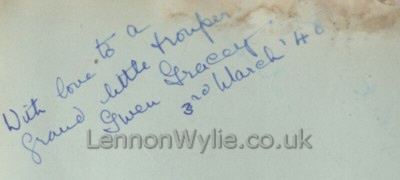 With love to a
grand little trouper
Gwen Gracey.
3rd March '40
LennonWylie.co.uk